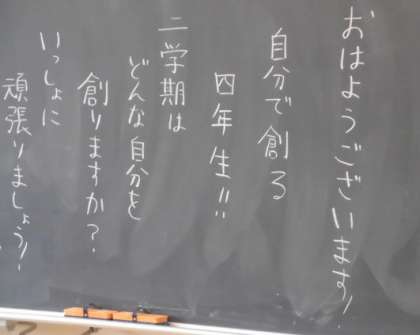 おはようございます!
自分で創る
四年生!!
二学期は
どんな自分を
創りますか?
いっしょに
頑張りましょう!